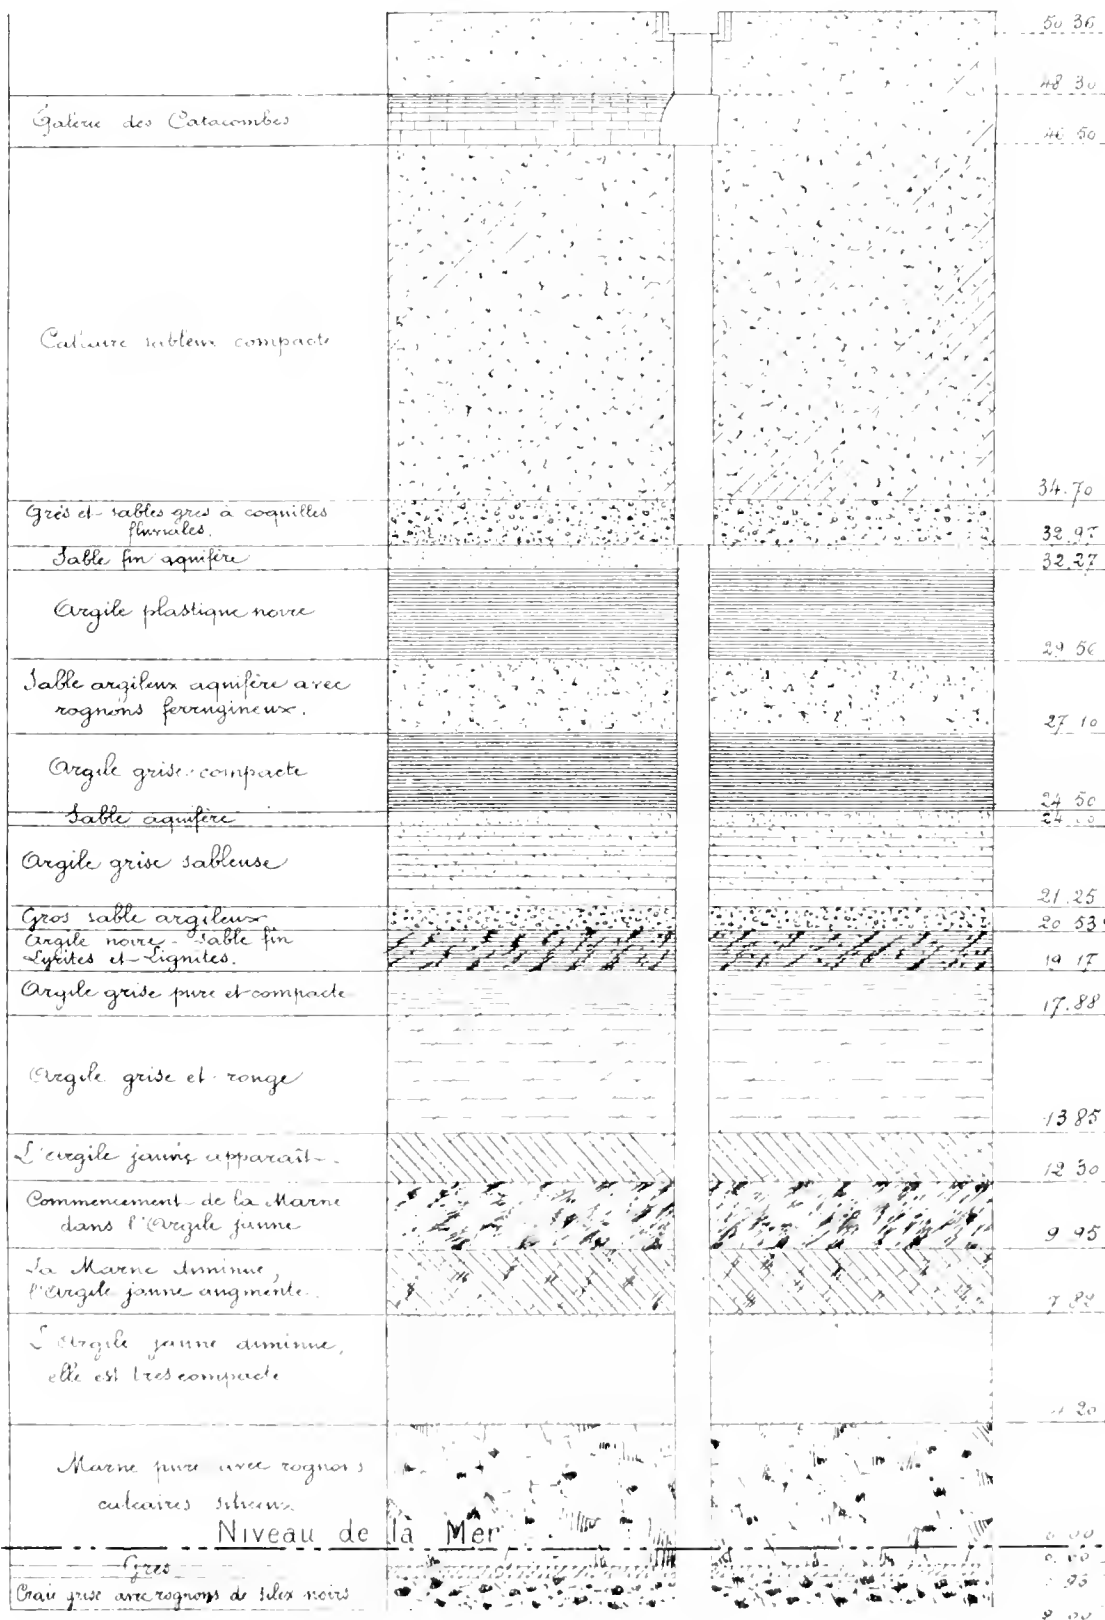 50 36
48 30
Galerie des Catacombes
46 50
Calcaire sableux compacte
34.70
Grès et sables gres à coquilles
fluviales.
32.97
Sable fin aquifère
32.27
Argile plastique noire
29 56
Sable argileux aquifère avec
rognons ferrugineux.
27 10
Argile grise compacte
24 50
Sable aquifère
Argile grise sableuse
21.25
Gros sable argileux
20 53
Argile noire - Sable fin
Lyrites et Lignites.
19 17
Argile grise pure et compacte
17.88
Argile grise et rouge
13 85
L'argile jaune apparaît
12 30
Commencement de la Marne
dans l'Argile jaune
9 95
La Marne diminue,
l'Argile jaune augmente
7 82
L'Argile jaune diminue,
elle est tres compacte
4 20
Marne pure avec rognons
calcaires siliceux
Niveau de la Mer
0 00
Grès
Craie grise avec rognons de silex noirs